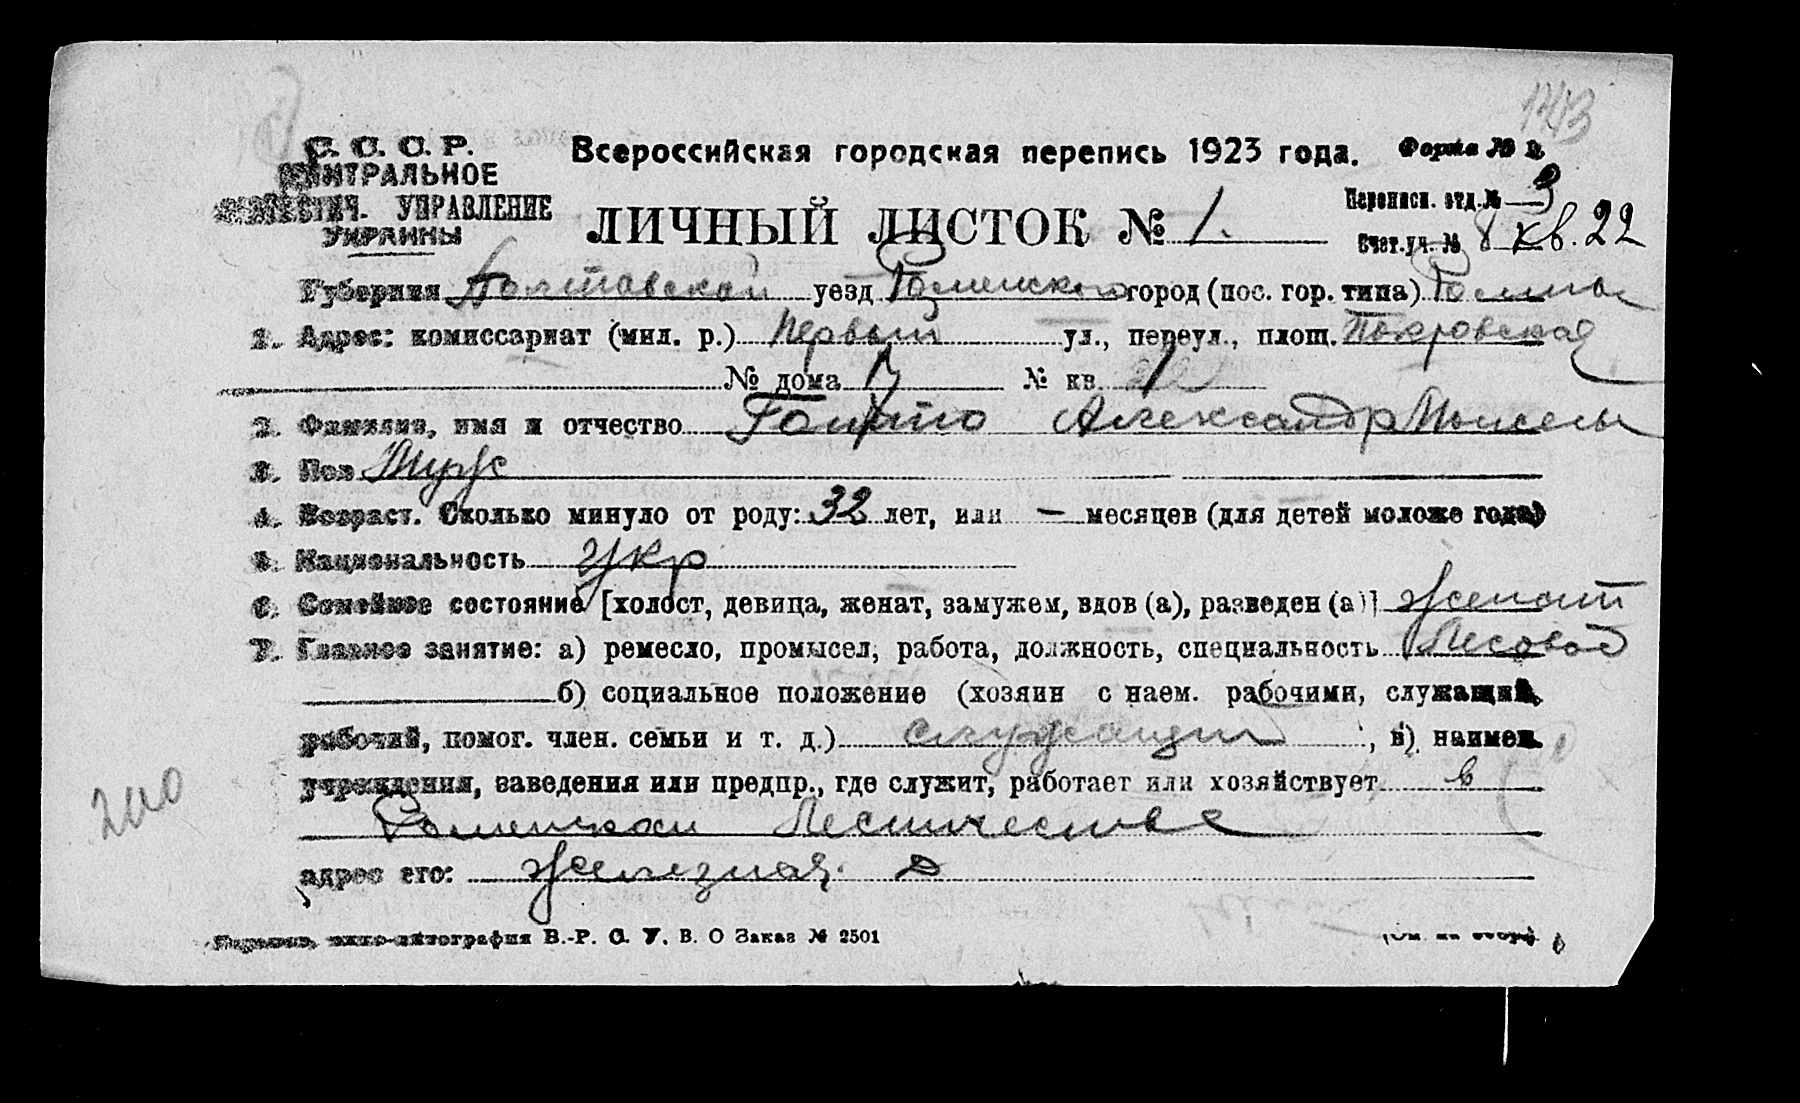 143
С. С. С. Р.
ЦЕНТРАЛЬНОЕ
СТАТИСТИЧ. УПРАВЛЕНИЕ
УКРАИНЫ
Всероссийская городская перепись 1923 года.
Форма № 2.
ЛИЧНЫЙ ЛИСТОК № 1.
Переписн. отд. № 3
Счет. уч. № 8 кв. 22
Губерния Полтавской уезд Роменского город (пос. гор. типа) Ромны
1. Адрес: комиссариат (мил. р.) Первый ул., переул., площ. Покровская
№ дома № кв.
2. Фамилия, имя и отчество Александр
3. Пол Муж
4. Возраст. Сколько минуло от роду: 32 лет, или — месяцев (для детей моложе года)
5. Национальность укр
6. Семейное состояние [холост, девица, женат, замужем, вдов (а), разведен (а)] женат
7. Главное занятие: а) ремесло, промысел, работа, должность, специальность Лесовод
б) социальное положение (хозяин с наем. рабочими, служащий,
рабочий, помог. член. семьи и т. д.) служащий, в) наимен.
учреждения, заведения или предпр., где служит, работает или хозяйствует в
Роменском Лесничестве
адрес его: Железная д
200
типо-литография В.-Р. С. У. В. О Заказ № 2501
(См. на обор.)